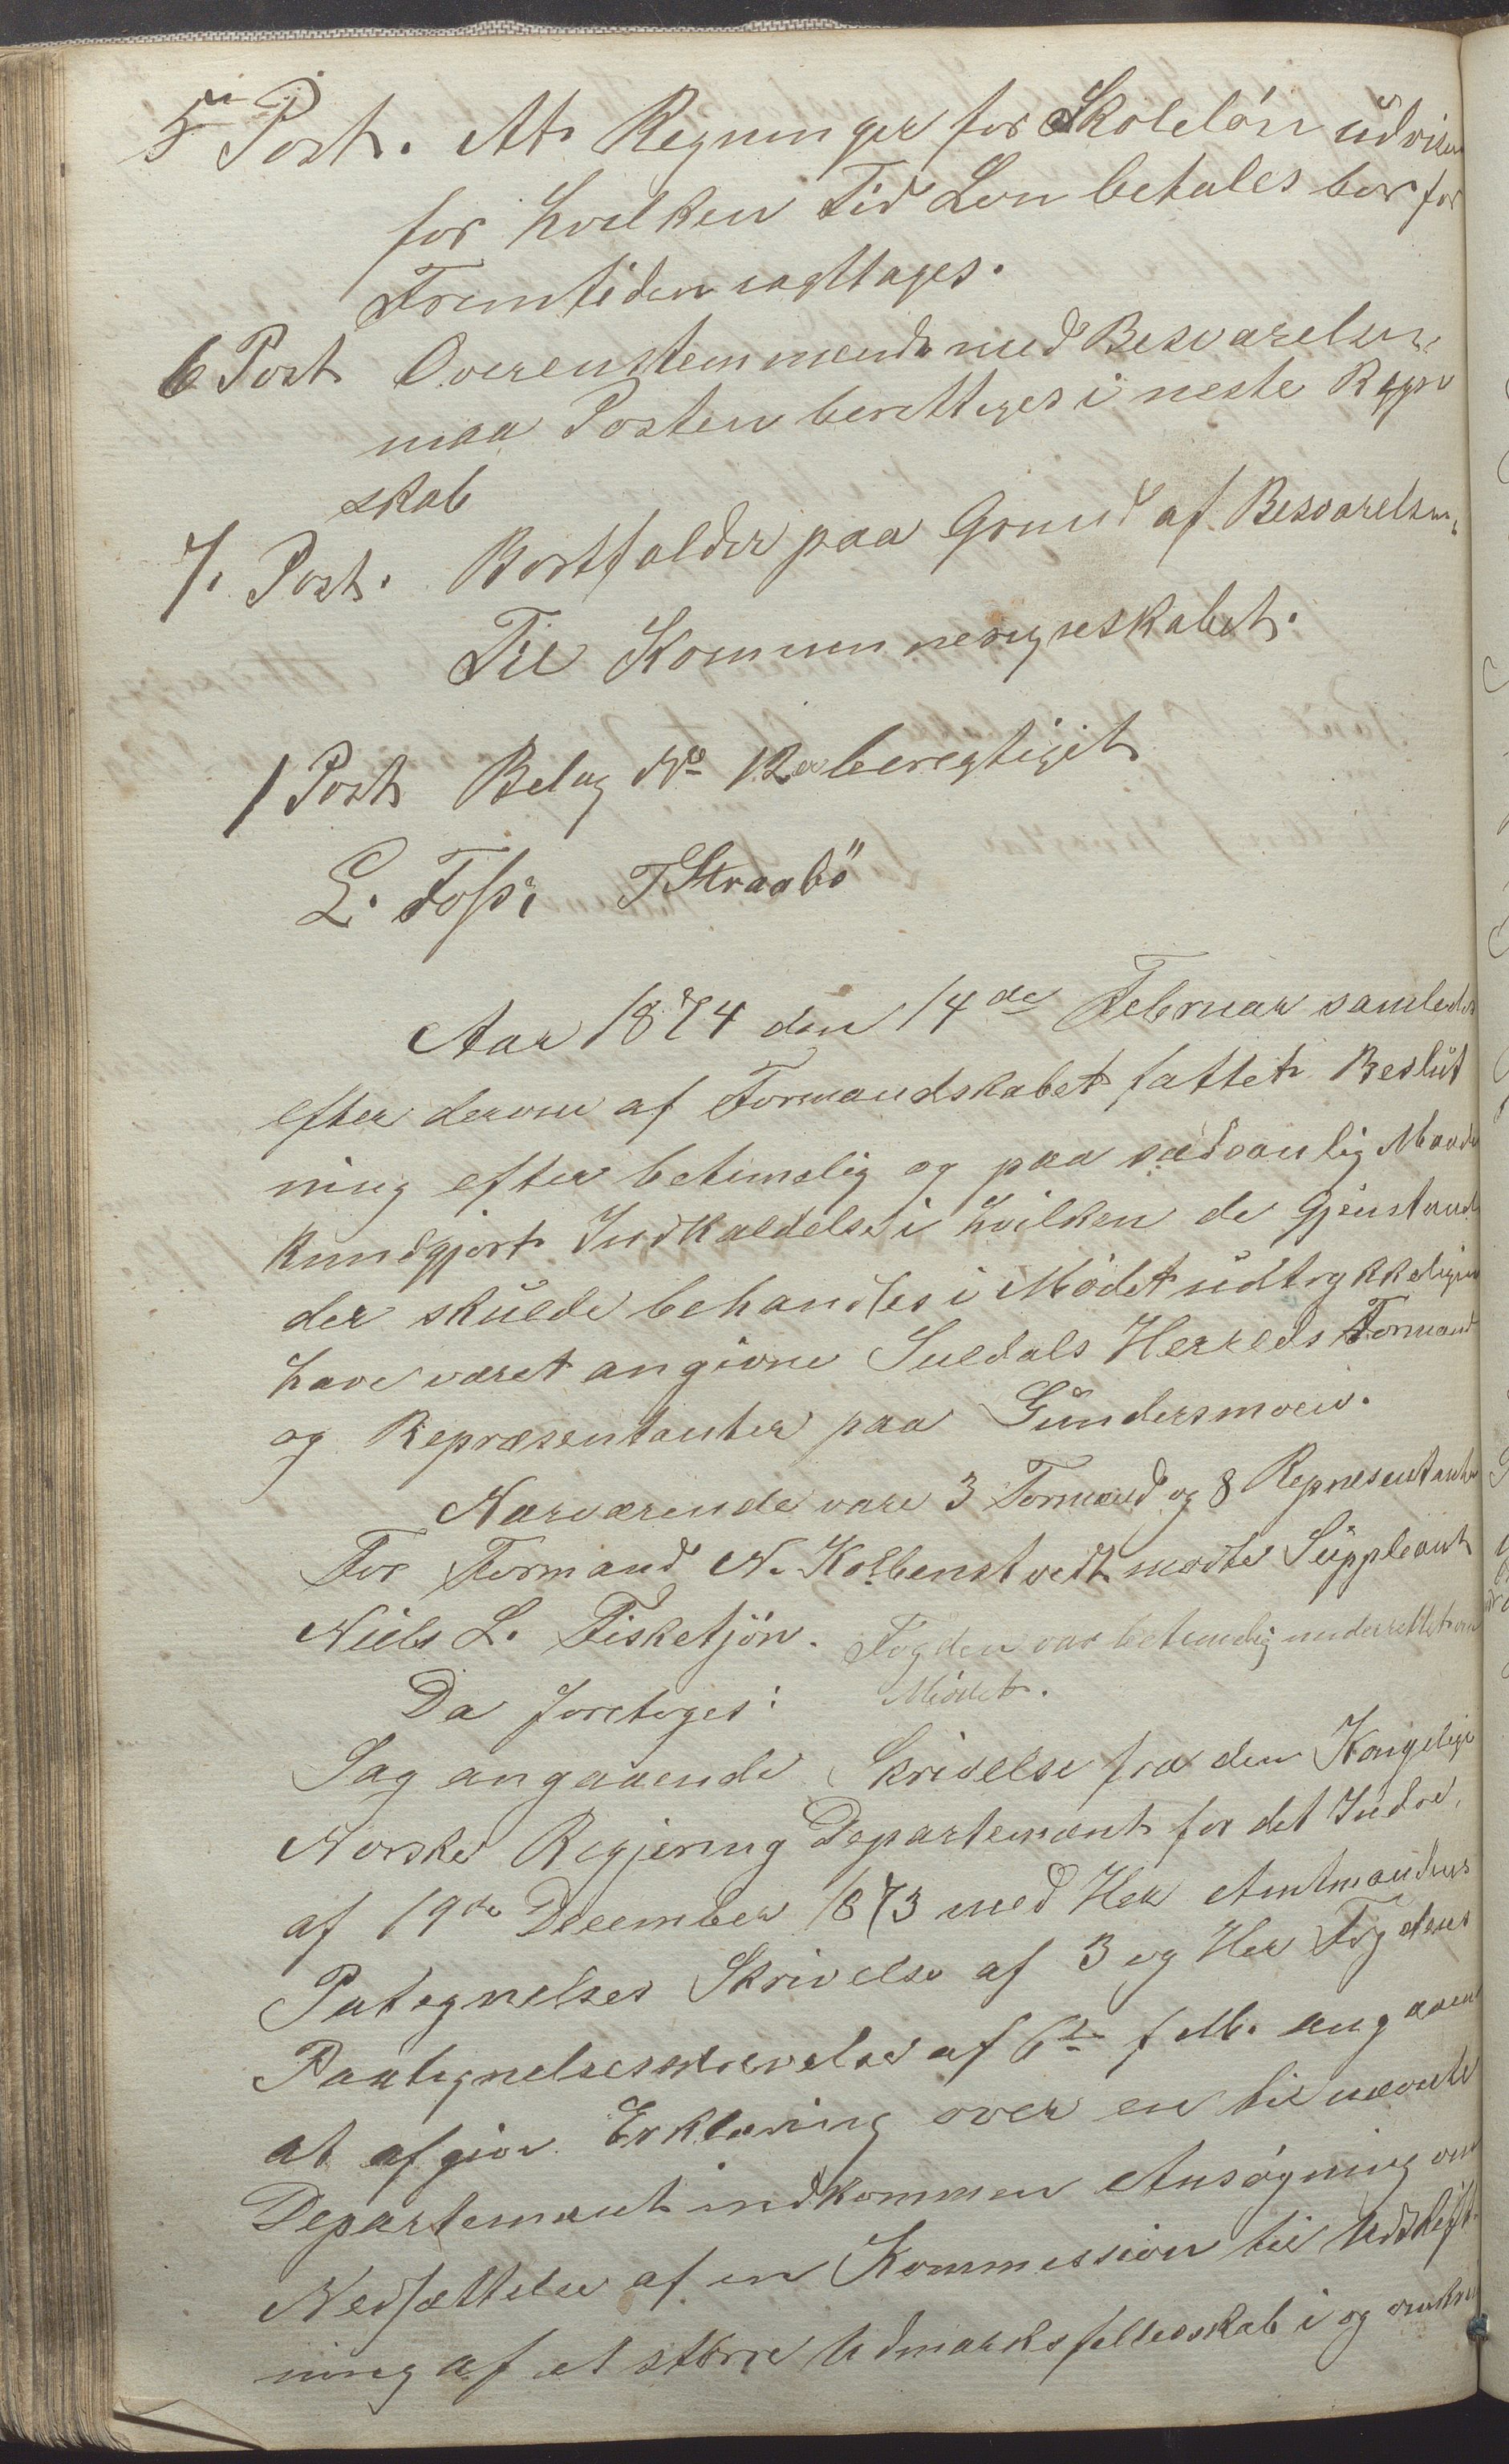 5 Post. At Regninger for Skoleløn udviser
for hvilken Tid Løn betales bør for
Fremtiden iagttages.
6 Post Overenstemmende med Besvarelsen
maa Posten berettiges i neste Regn
skab
7. Post. Bortfalder paa Grund af Besvarelsen.
Til Kommuneregneskabet.
1 Post Belag No 12 er beregtiget
L. Foss. T Straabö
Aar 1874 den 14de Februar samledes
efter derom af Formandskabet fattet Beslut
ning efter betimelig og paa sædvanlig Maade
kundgjort Indkaldelse i hvilken de Gjenstande
der skulde behandles i Mødet udtrykkeligen
have været angivne Suldals Herreds Formænd
og Repræsentanter paa Gundersmoen.
Nærværende vare 3 Formænd og 8 Repræsentanter
For Formand N. Kolbenstvedt mødte Suppleant
Niels L. Fisketjön. Fogden var betimelig underrettet om
Mödet.
Da foretoges:
Sag angaaende Skrivelse fra den Kongelige
Norske Regjering Departement for det Indre,
af 19de December 1873 med Her Amtmandens
Pategnelses Skrivelse af 3 og Her Fogdens
Paategnelsesskrivelse af 6te f. M. angaaende
at afgive Erklæring over en til nævnte
Departement indkommen Ansøgning om
Nedsættelse af en Kommission til Udskift
ning af et större Udmarksfellesskab i og omkring